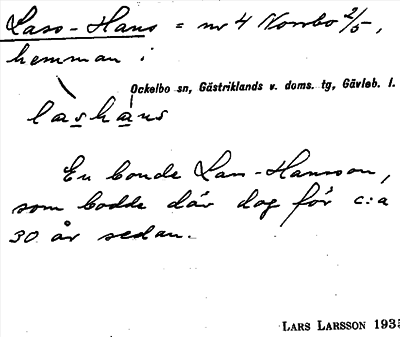 Lass-Hans = nr 4 Vombo 2/5,
hemman i
Ockelbo sn, Gästriklands v. doms. tg, Gävleb. l.
lashans
En bonde Lars Hansson,
som bodde där dog för c:a
30 år sedan.
LARS LARSSON 1935